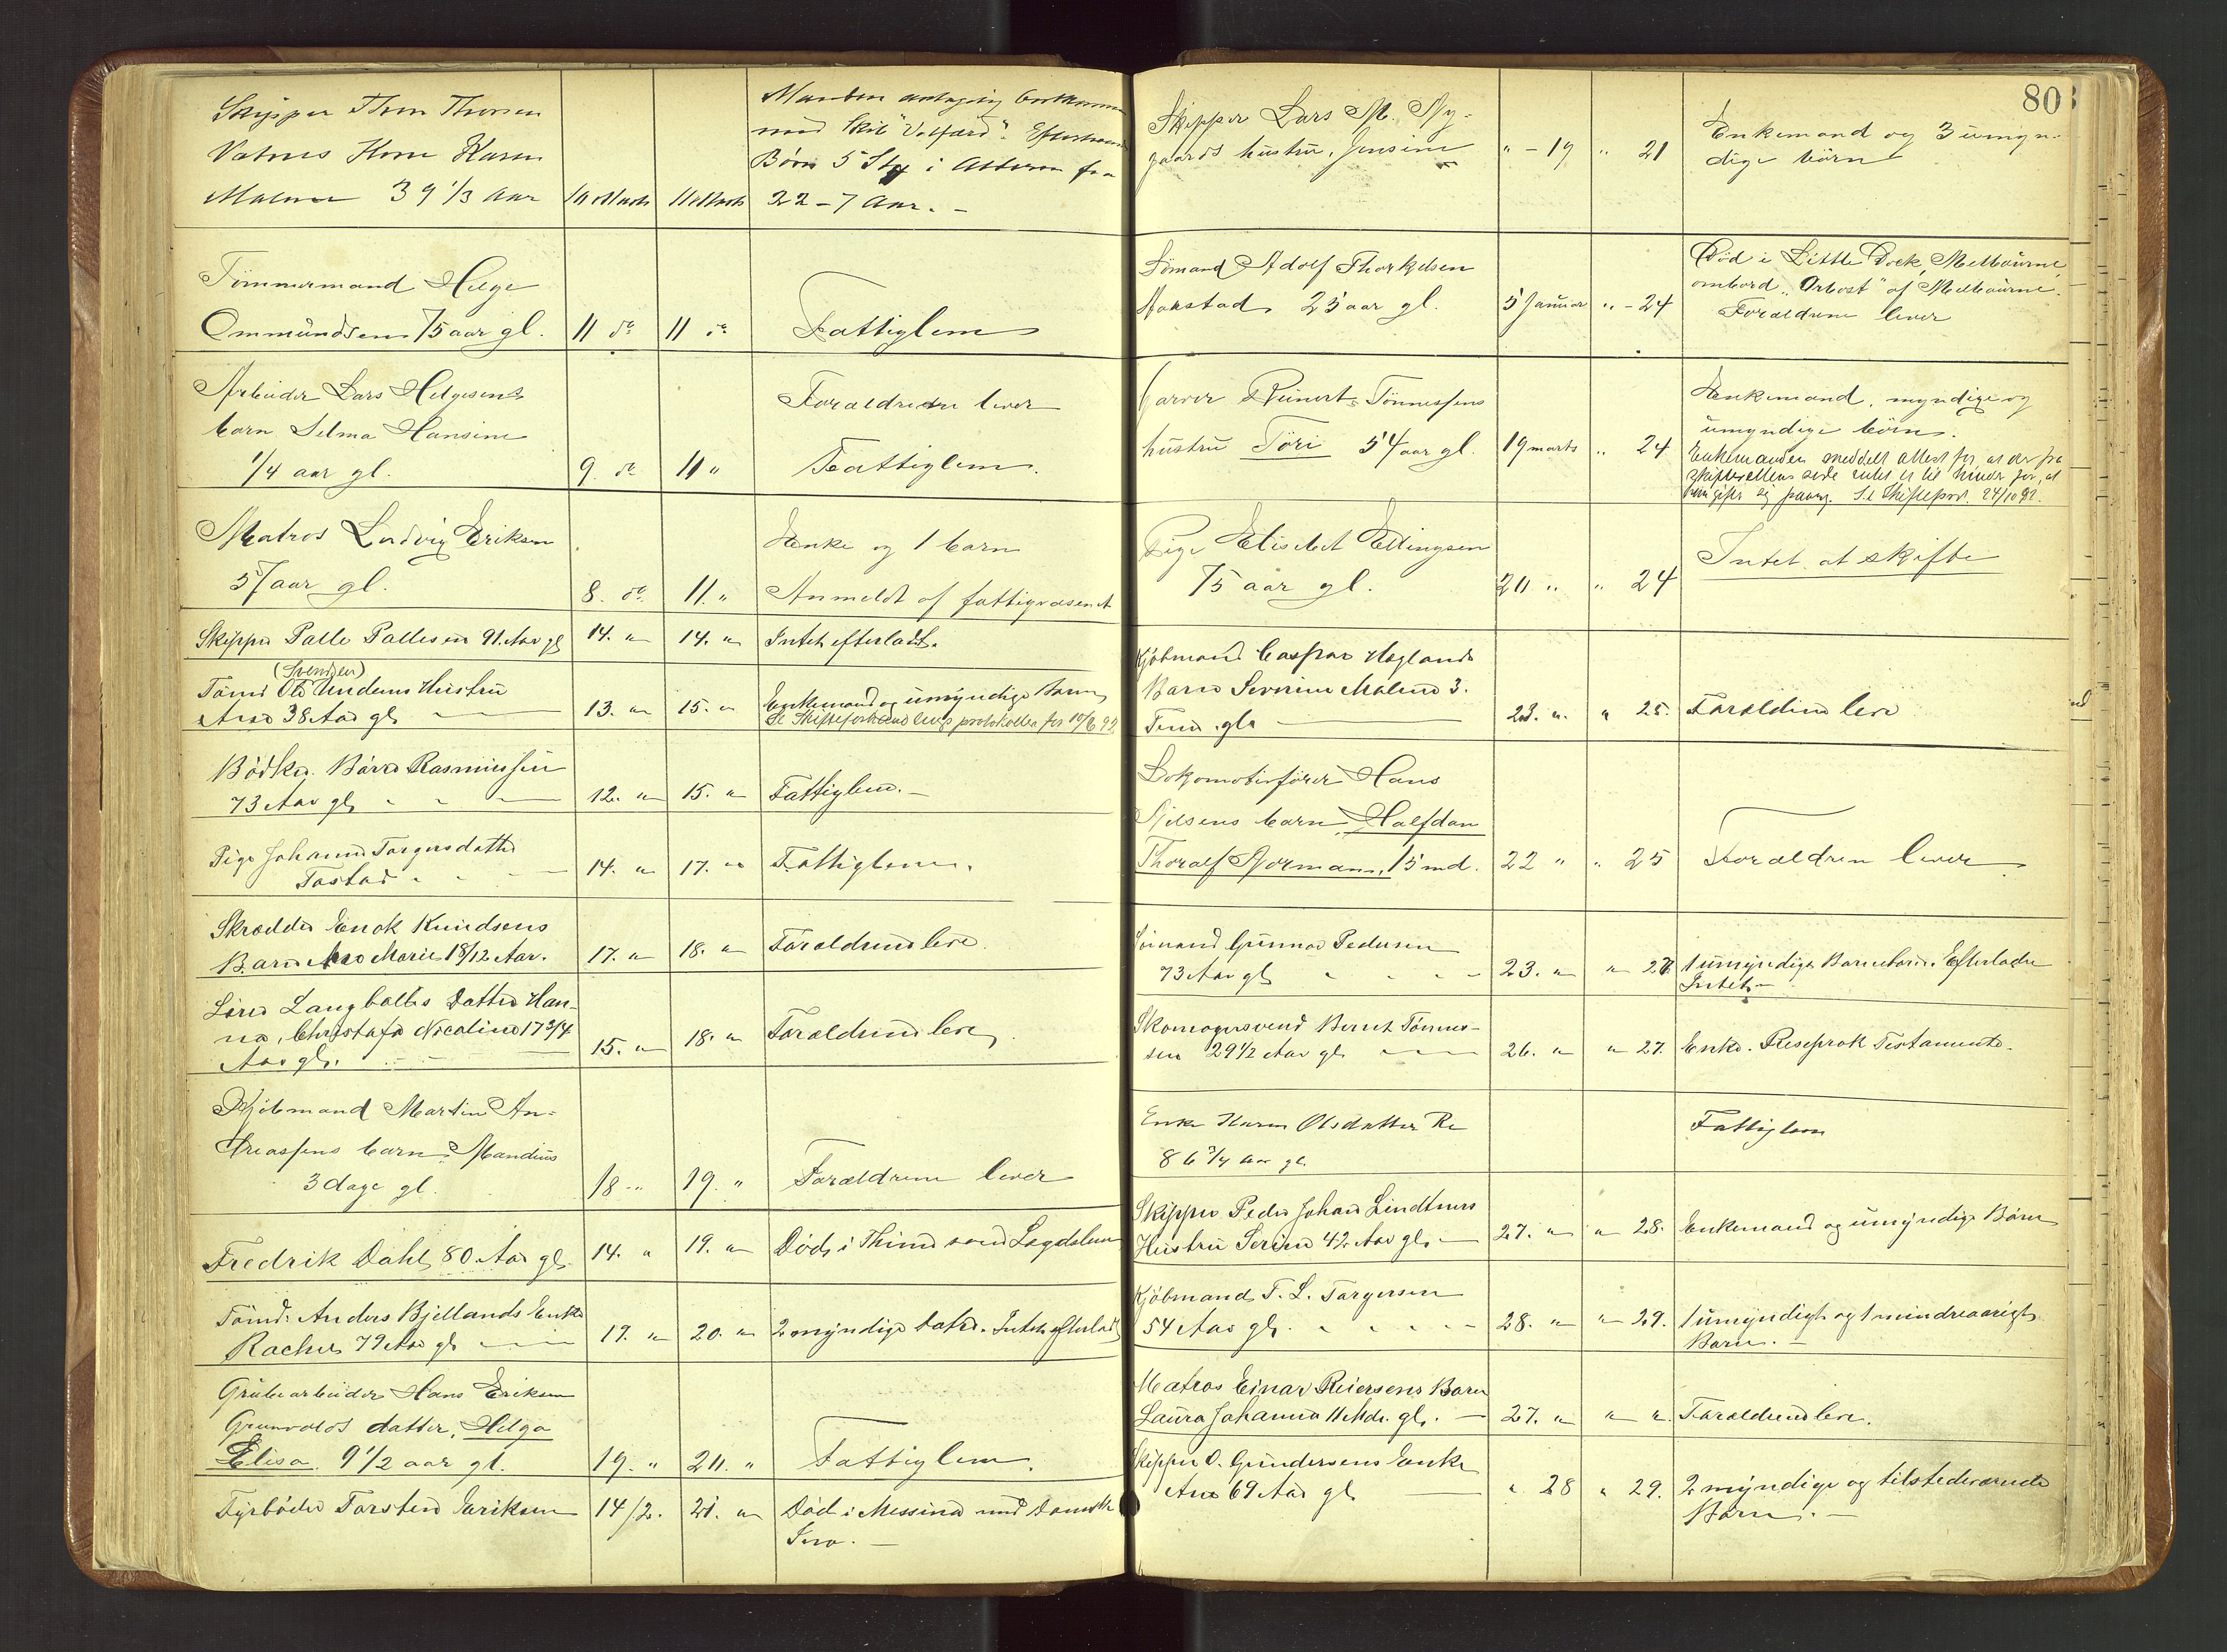 Skipper Thore Thorsen
Vatnes Kone Karen
Malene 39 1/3 Aar 10 Marts 11 Marts
Manden antagelig omkommen
med Skib "Velfærd". Efterlader
Børn 5 Stk i Alderen fra
22 – 7 Aar. –
Tømmermand Helge
Ommundsen 75 aar gl. 11 do 11 do Fattiglem
Arbeider Lars Helgesens
barn Selma Hansine
1/4 aar gl. 9. do 11 "
Forældrene lever
Fattiglem.
Matros Ludvig Eriksen
57 aar gl. 8. do. 11. "
Enke og 1 barn
Anmeldt af fattigvæsenet
Skipper Palle Pallesen 91 Aar gl 14. " 14. " Intet efterladt.
(Svendsen)
Tømd Ole Undems Hustru
Ane 38 Aar gl. 13. " 15. "
Enkemand og umyndige Børn
Se Skifteforhandlingsprotokollen for 10/6 92
Bødker Børre Rasmussen
73 Aar gl. 12. " 15. " Fattiglem. –
Pige Johanne Torgersdatter
Tastad 14. " 17. " Fattiglem.
Skrædder Enok Knudsens
Barn Marie 1 8/12 Aar. 17. " 18. " Forældrene leve.
Lars Langballes Datter Han-
na, Christofa Nicoline 17 3/4
Aar gl. 15. " 18. " Forældrene leve
Kjøbmand Martin An-
dreassens barn Mandius
3 dage gl. 18 " 19. " Forældrene lever
Fredrik Dahl, 80 Aar gl. 14. " 19. " Død i Thime som Lægdslem
Tømd. Anders Bjellands Enke
Rachel 79 Aar gl 17. " 20. " 2 myndige Døtre. Intet efterladt
Grubearbeider Hans Eriksen
Grunvolds datter, Helga
Elisa. 9 1/2 aar gl. 19. " 21. " Fattiglem.
Fyrbøder Torsten Eriksen 14/2. 21. " Død i Messina med Damsk.
80
Skipper Lars M. Ny-
gaards hustru, Jensine " – 19 " 21
Enkemand og 3 umyn-
dige børn
Sømand Adolf Thorkelsen
Aarstad 25 aar gl. 5 Januar " – 24
Død i Little Dock, Melbourne
ombord "Orbost" af Melbourne.
Forældrene lever
Garver Reinert Tønnessens
hustru Tori 54 aar gl. 19 marts " 24
Enkemand, myndige og
umyndige børn.
Enkemanden meddelt attest for at der fra
skifterettens side intet er til hinder for, at
han gifter sig paany. Se Skifteprot. 24/10 92.
Pige Elisabet Ellingsen
75 aar gl. 20 " " 24
Intet at skifte
Kjøbmand Caspar Hoglands
Barn Severine Malene 3.
Timer gl. 23. " " 25. Forældrene leve
Lokomotivfører Hans
Nilsens barn, Halfdan
Thoralf Normann, 15 md. 22 " " 25 Forældren lever
Sømand Gunnar Pedersen
73 Aar gl 23. " " 26
1 umyndige Barnebarn. Efterlader
Intet. –
Skomagersvend Bernt Tønnes-
sen 29 1/2 Aar gl. 26. " " 27. Enke. Reseprok Testamente.
Enke Karen Olsdatter Re
86 3/4 aar gl.
Fattiglem
Skipper Peder Johan Lindtners
Hustru Serine 42 Aar gl. 27. " " 28. Enkemand og umyndige Børn
Kjøbmand T. L. Torgersen
54 Aar gl. 28. " " 29.
1 umyndigt og 1 mindreaarigt
Barn. –
Matros Einar Reiersens Barn
Laura Johanna 11 Mdr. gl. 27. " " " Forældrene leve.
Skipper O. Gundersens Enke
Ane 69 Aar gl " 28 " 29.
2 myndige og tilstedeværende
Børn. –